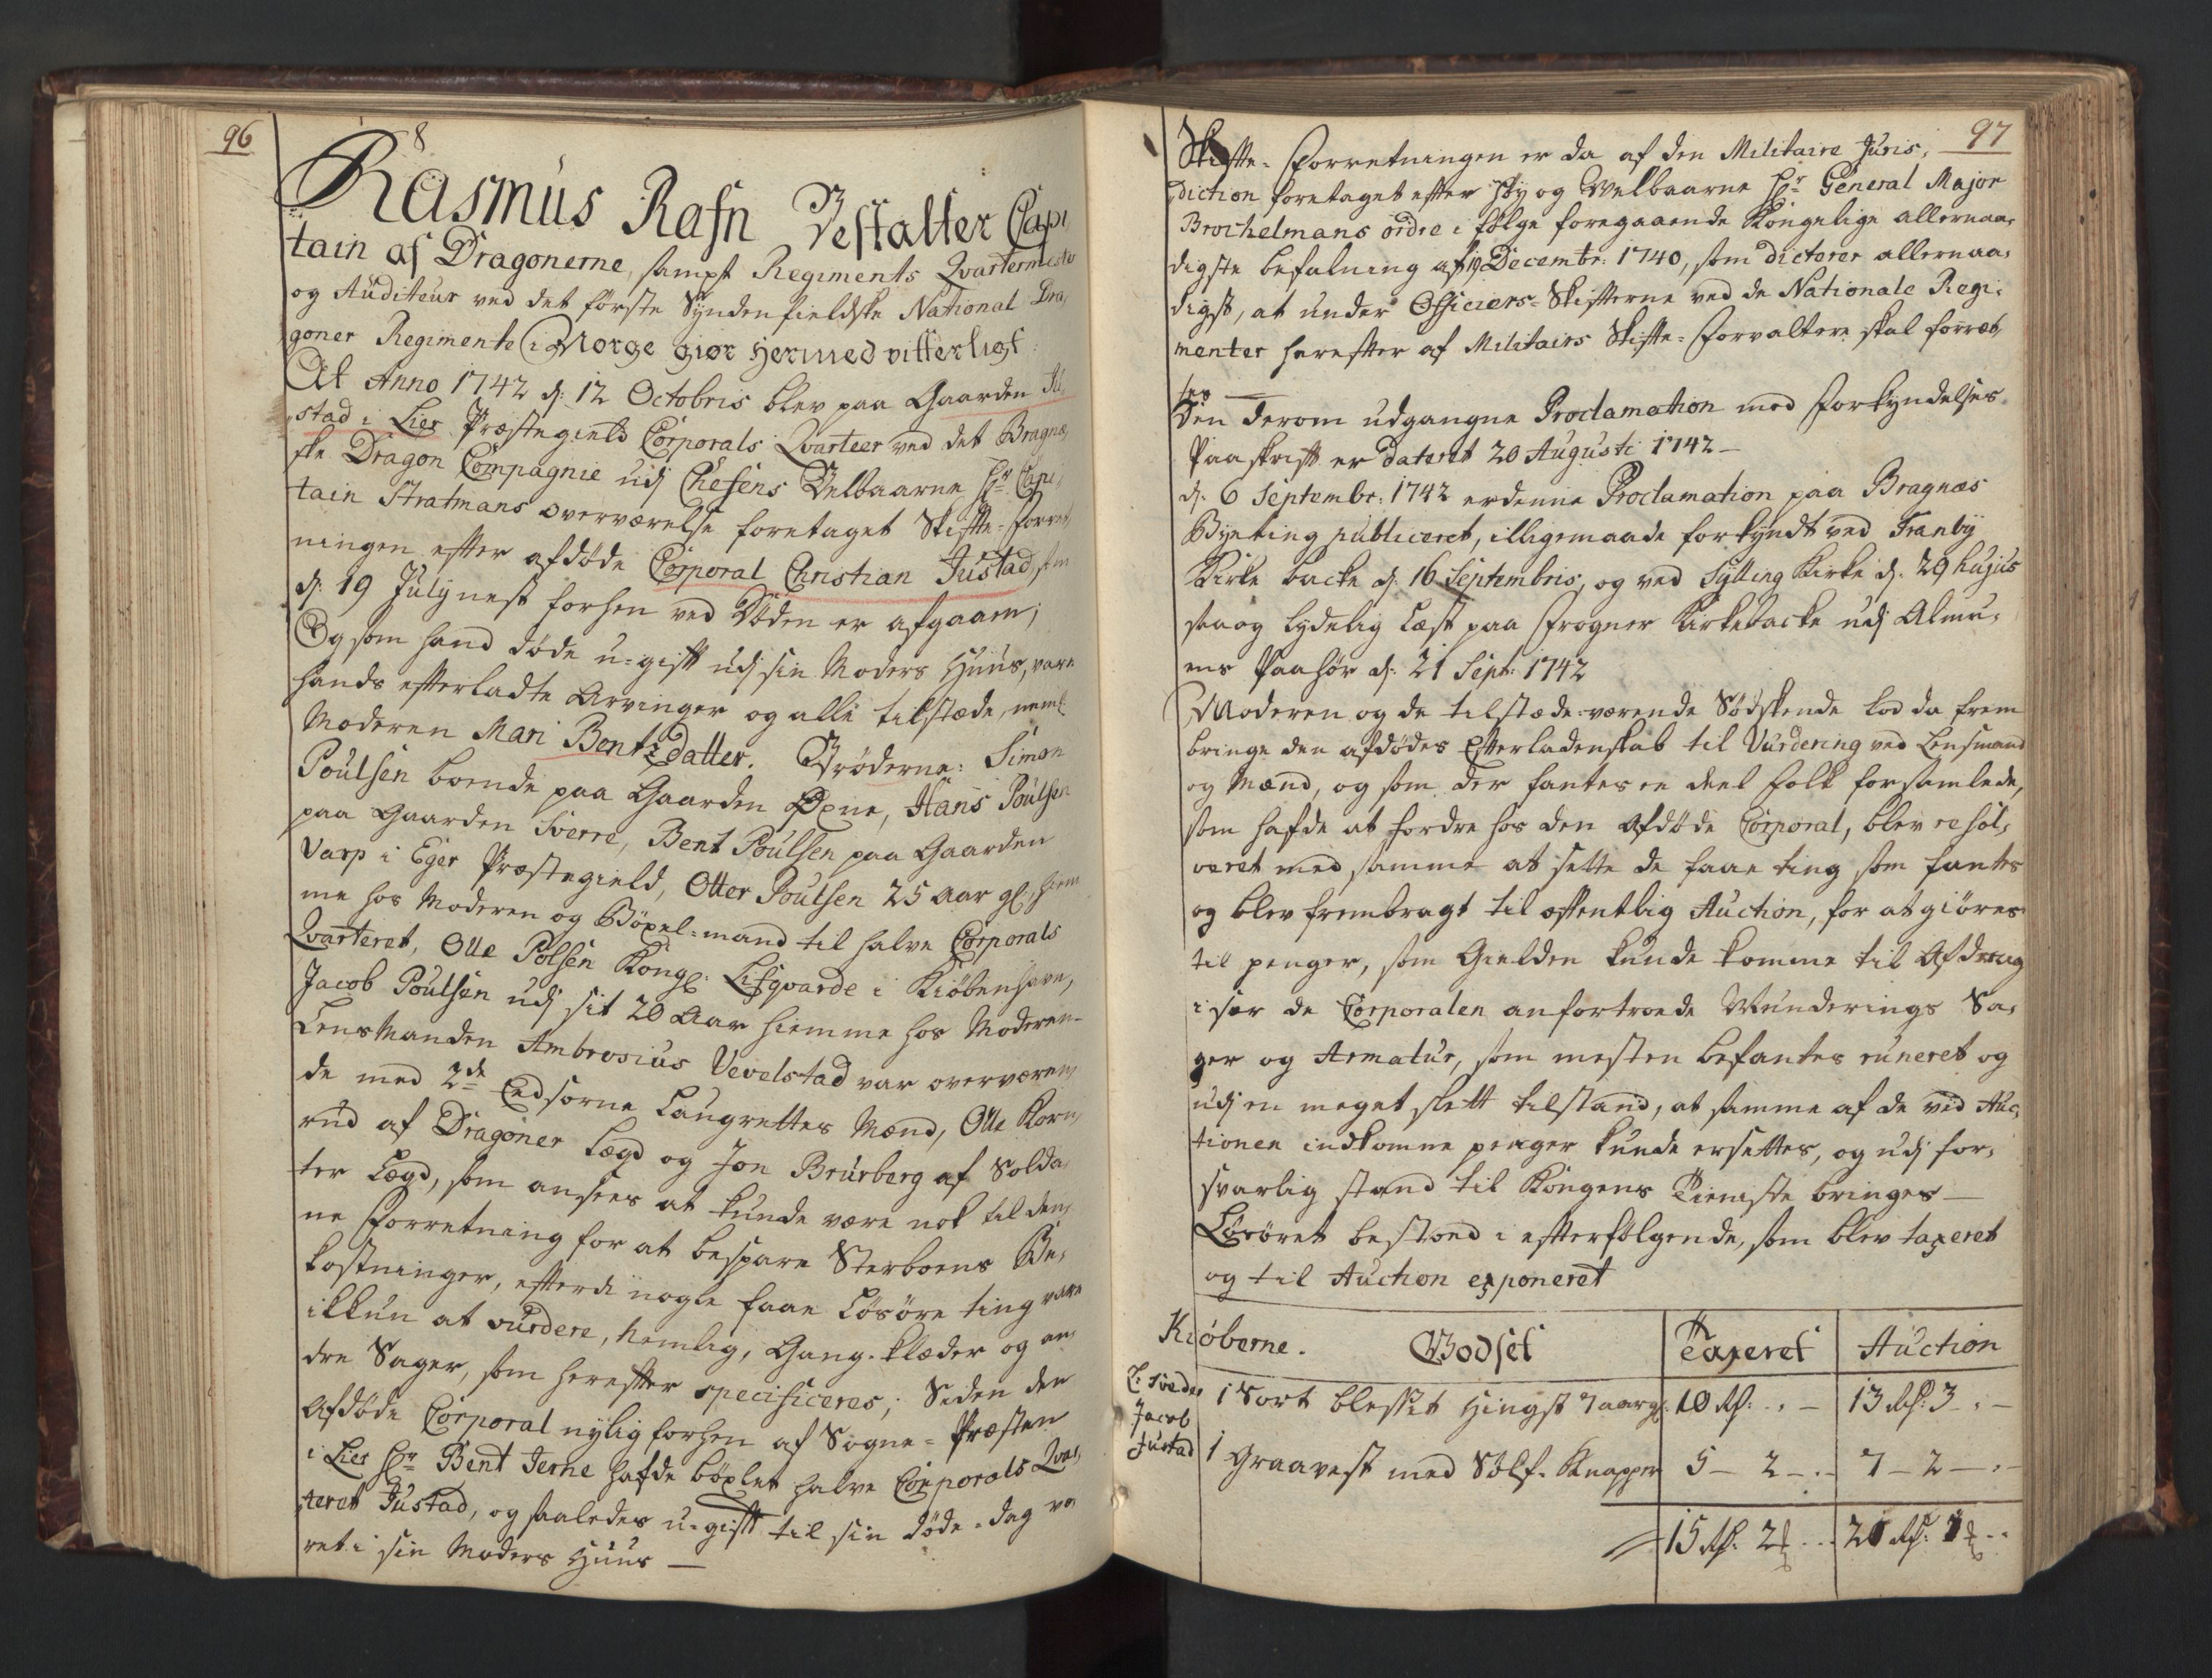 96
8
Rasmus Rafn Bestalter Capi,
tain af Dragonerne, sampt Regiments Qvartermester
og Auditeur ved det første Syndenfieldske National Dra,
goner Regimente i Norge giør hermed vitterligt:
At Anno 1742 d: 12 Octobris blev paa Gaarden Ju,
stad i Lier Præstegield Corporals Qvarteer ved det Bragnæ,
ske Dragon Compagnie udj Chefens Velbaarne Hr: Capi,
tain Stratmans overværelse foretaget Skifte-Forret,
ningen efter afdøde Corporal Christian Justad, som
d: 19 Julij nest forhen ved Døden er afgaaen;
Og som hand døde u-gift udj sin Moders Huus, vare
hands efterladte Arvinger og alle tilstæde, neml:
Moderen Mari Bentzdatter. Brøderne: Simon
Poulsen boende paa Gaarden Øxne, Hans Poulsen
paa Gaarden Sverre, Bent Poulsen paa Gaarden
Varp i Eger Præstegield, Otter Poulsen 25 aar gl: hiem
me hos Moderen og Böxel-mand til halve Corporals
Qvarteret, Olle Polsen Kongl: Lifgvarde i Kiöbenhavn,
Jacob Poulsen udj sit 20 Aar hiemme hos Moderen-
LensManden Ambrosius Vevelstad var overværen,
de med 2de Eedsorne Laugrettes Mænd, Olle Korn,
rud af Dragoner Lægd og Jon Brurberg af Solda,
ter Lægd, som ansees at kunde være nok til den,
ne Forretning for at bespare Sterboens Be,
kostninger, efterdi nogle faae Løsøre ting vare
ikkun at vurdere, nemlig, Gang-klæder og an,
dre Sager, som herefter specificeres; Siden den
Afdøde Corporal nylig forhen af Sogne-Præsten
i Lier Hr: Bent Jerne hafde böxlet halve Corporals Qvar,
teret Justad, og saaledes u-gift til sin døde-dag væ
ret i sin Moders Huus —
97
Skifte-Forretningen er da af den Militaire Juris,
diction foretaget efter Høy og Velbaarne Hr: General Major
Brochelmans ordre i følge foregaaende Kongelige allernaa,
digste befalning af 19 Decembr: 1740, som dicterer allernaa,
digst, at under Officiers-Skifterne ved de Nationale Regi,
menter herefter af Militairs Skifte-Forvaltere skal forret,
tes —
Den derom udgangne Proclamation med Forkyndelses
Paaskrift er dateret 20 Augusti 1742 —
d: 6 Septembr: 1742 er denne Proclamation paa Bragnæs
Byeting publiceret, illigemaade forkyndt ved Tranby
Kirke backe d: 16 Septembris, og ved Sylling Kirke d: 29 hujus
saa og lydelig læst paa Frogner Kirkebacke udj Almu,
ens Paahør d: 21 Sept: 1742
Moderen og de tilstæde-værende Sødskende lod da frem
bringe den afdødes Efterladenskab til Vurdering ved Lensmand
og Mænd, og som der fantes en deel Folk forsamlede,
som hafde at fordre hos den Afdøde Corporal, blev resol,
veret med samme at sette de faae ting som fantes
og blev frembragt til offentlig Auction, for at giöres
til penger, som Gielden kunde komme til Afdrag
i sær de Corporalen anfortroede Munderings Sa,
ger og Armatur, som mesten befantes runeret og
udj en meget slett tilstand, at samme af de ved Auc,
tionen indkomne penger kunde ersettes, og udj for,
svarlig stand til Kongens Tieniste bringes —
Løsøret bestoed i efterfølgende, som blev taxeret
og til Auction exponeret
Kiöberne. Godset Taxeret Auction
1 Sort blesset Hingst 7 aar gl: 10 Rd: . — 13 Rd: 3 . —
Jacob
Justad
1 Graavest med Sølf-Knapper 5 — 2 — . 7 — 2 — .
15 Rd: 2 . . . 21 Rd: 1 . .